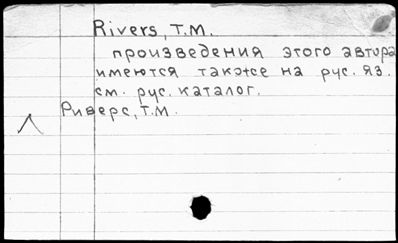 Rivers, T.M.
произведения этого автора
имеются также на рус. яз.
см. рус. каталог.
Риверс, Т.М.